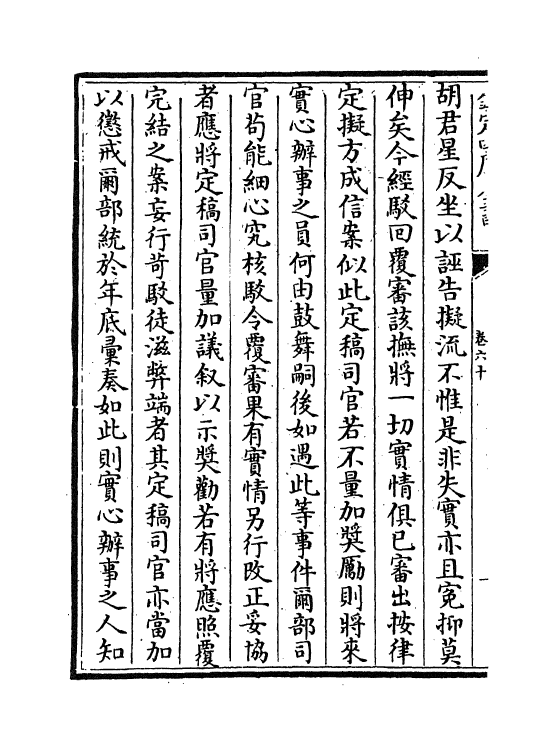 欽定四庫全書
卷六十
胡君星反坐以誣告擬流不惟是非失實亦且寃抑莫
伸矣今經駁回覆審該撫將一切實情俱已審出按律
定擬方成信案似此定稿司官若不量加奬勵則將來
實心辦事之員何由鼓舞嗣後如遇此等事件爾部司
官茍能細心究核駁令覆審果有實情另行改正妥協
者應將定稿司官量加議叙以示奬勸若有將應照覆
完結之案妄行苛駁徒滋弊端者其定稿司官亦當加
以懲戒爾部統於年底彚奏如此則實心辦事之人知